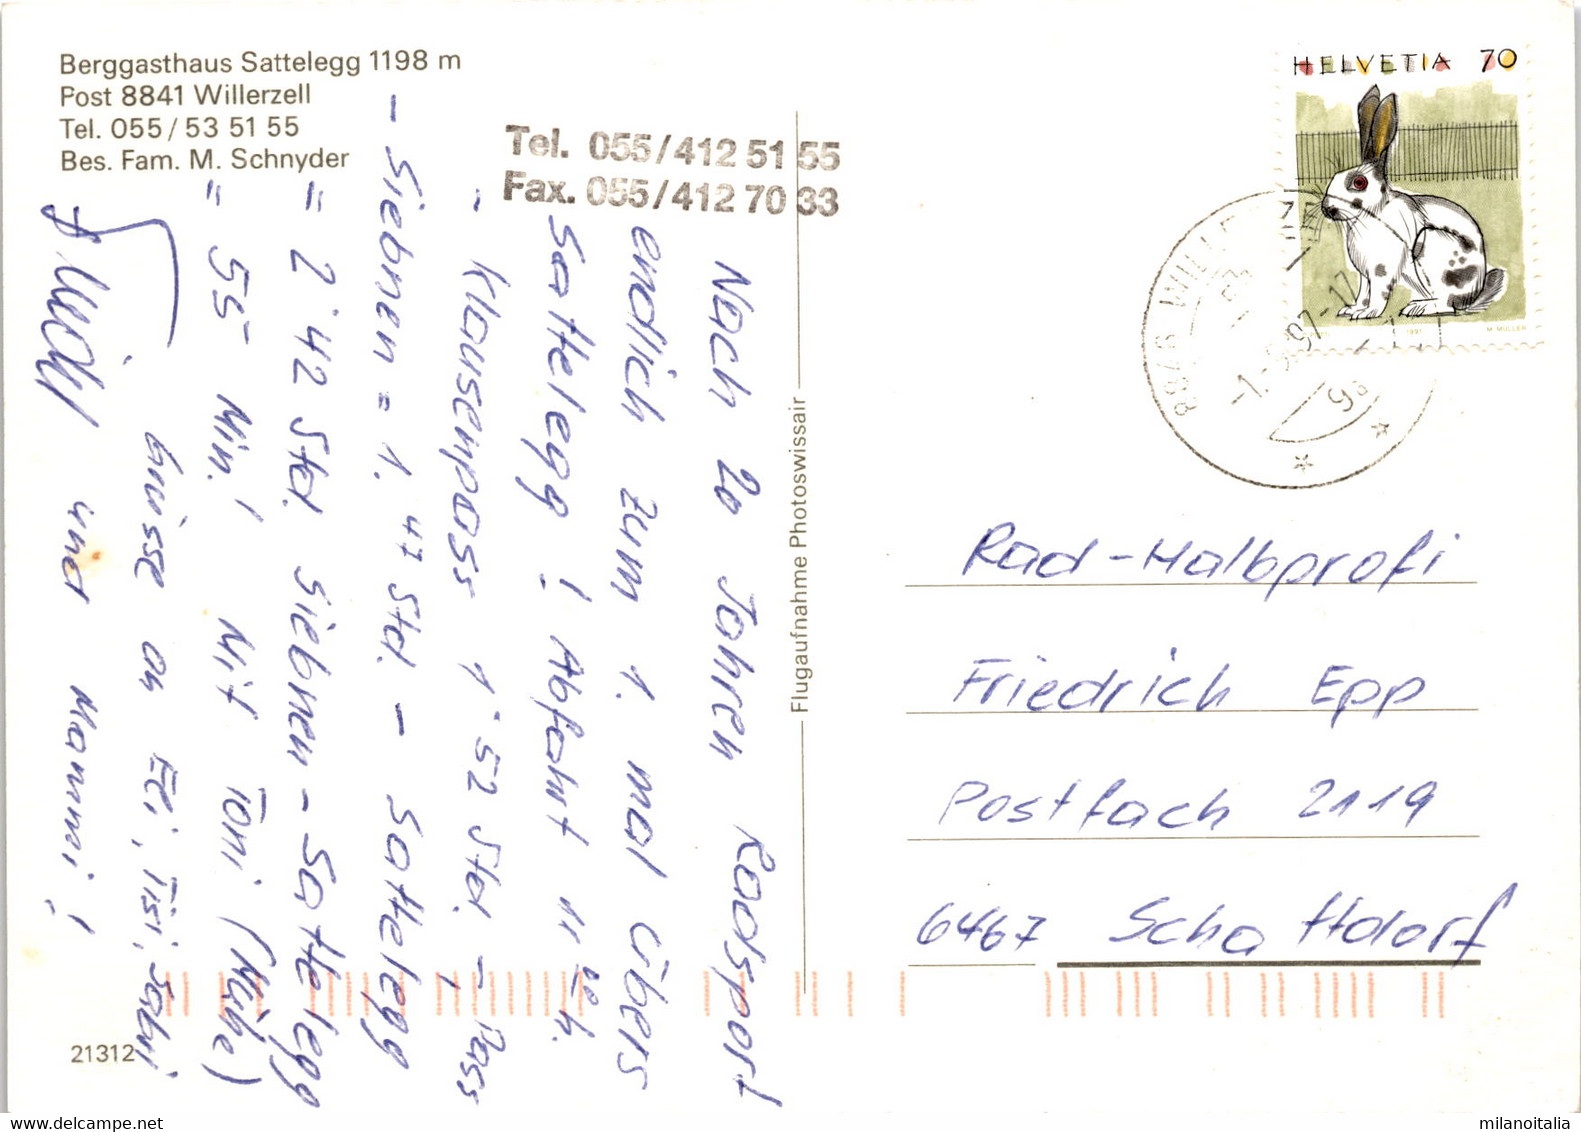 Berggasthaus Sattelegg 1198 m
Post 8841 Willerzell
Tel. 055/53 51 55
Bes. Fam. M. Schnyder
Tel. 055/412 51 55
Fax. 055/412 70 33
Nach 20 Jahren Radsport
endlich zum 1. mal übers
Sattelegg! Abfahrt 11.00h.
- Klausenpass 1´52 Std. - Pass
- Siebnen = 1.47 Std. - Sattelegg
= 2´42 Std. Siebnen - Sattelegg
= 55 Min.! Mit Toni (Mühe)
Grüsse an Eli, Tisi, Sabri
und Mammi!
Flugaufnahme Photoswissair
21312
HELVETIA 70
1991
M. MÜLLER
97-17
Rad-Halbprofi
Friedrich Epp
Postfach 2119
6467 Schattdorf
milanoitalia